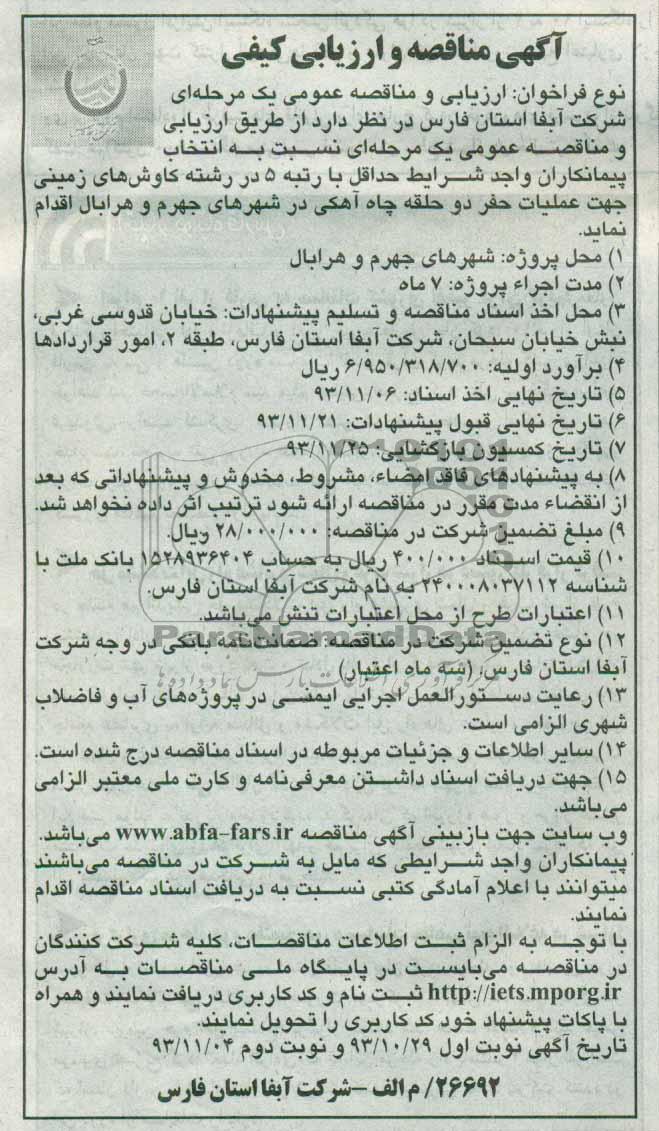 آگهی مناقصه و ارزیابی کیفی
نوع فراخوان: ارزیابی و مناقصه عمومی یک مرحله‌ای
شرکت آبفا استان فارس در نظر دارد از طریق ارزیابی
و مناقصه عمومی یک مرحله‌ای نسبت به انتخاب
پیمانکاران واجد شرایط حداقل با رتبه ۵ در رشته کاوش‌های زمینی
جهت عملیات حفر دو حلقه چاه آهکی در شهرهای جهرم و هرابال اقدام
نماید.
۱) محل پروژه: شهرهای جهرم و هرابال
۲) مدت اجراء پروژه: ۷ ماه
۳) محل اخذ اسناد مناقصه و تسلیم پیشنهادات: خیابان قدوسی غربی،
نبش خیابان سبحان، شرکت آبفا استان فارس، طبقه ۲، امور قراردادها
۴) برآورد اولیه: ۶/۹۵۰/۳۱۸/۷۰۰ ریال
۵) تاریخ نهایی اخذ اسناد: ۹۳/۱۱/۰۶
۶) تاریخ نهایی قبول پیشنهادات: ۹۳/۱۱/۲۱
۷) تاریخ کمسیون بازگشایی: ۹۳/۱۱/۲۵
۸) به پیشنهادهای فاقد امضاء، مشروط، مخدوش و پیشنهاداتی که بعد
از انقضاء مدت مقرر در مناقصه ارائه شود ترتیب اثر داده نخواهد شد.
۹) مبلغ تضمین شرکت در مناقصه: ۲۸/۰۰۰/۰۰۰ ریال.
۱۰) قیمت اسناد ۴۰۰/۰۰۰ ریال به حساب ۱۵۲۸۹۳۶۴۰۴ بانک ملت با
شناسه ۲۴۰۰۰۸۰۳۷۱۱۲ به نام شرکت آبفا استان فارس.
۱۱) اعتبارات طرح از محل اعتبارات تنش می‌باشد.
ParsNamadData
۱۲) نوع تضمین شرکت در مناقصه: ضمانت‌نامه بانکی در وجه شرکت
آبفا استان فارس (سه ماه اعتبار)
۱۳) رعایت دستورالعمل اجرایی ایمنی در پروژه‌های آب و فاضلاب
شهری الزامی است.
۱۴) سایر اطلاعات و جزئیات مربوطه در اسناد مناقصه درج شده است.
۱۵) جهت دریافت اسناد داشتن معرفی‌نامه و کارت ملی معتبر الزامی
می‌باشد.
وب سایت جهت بازبینی آگهی مناقصه www.abfa-fars.ir می‌باشد.
پیمانکاران واجد شرایطی که مایل به شرکت در مناقصه می‌باشند
میتوانند با اعلام آمادگی کتبی نسبت به دریافت اسناد مناقصه اقدام
نمایند.
با توجه به الزام ثبت اطلاعات مناقصات، کلیه شرکت کنندگان
در مناقصه می‌بایست در پایگاه ملی مناقصات به آدرس
http://iets.mporg.ir ثبت نام و کد کاربری دریافت نمایند و همراه
با پاکات پیشنهاد خود کد کاربری را تحویل نمایند.
تاریخ آگهی نوبت اول ۹۳/۱۰/۲۹ و نوبت دوم ۹۳/۱۱/۰۴
۲۶۶۹۲/ م الف -شرکت آبفا استان فارس